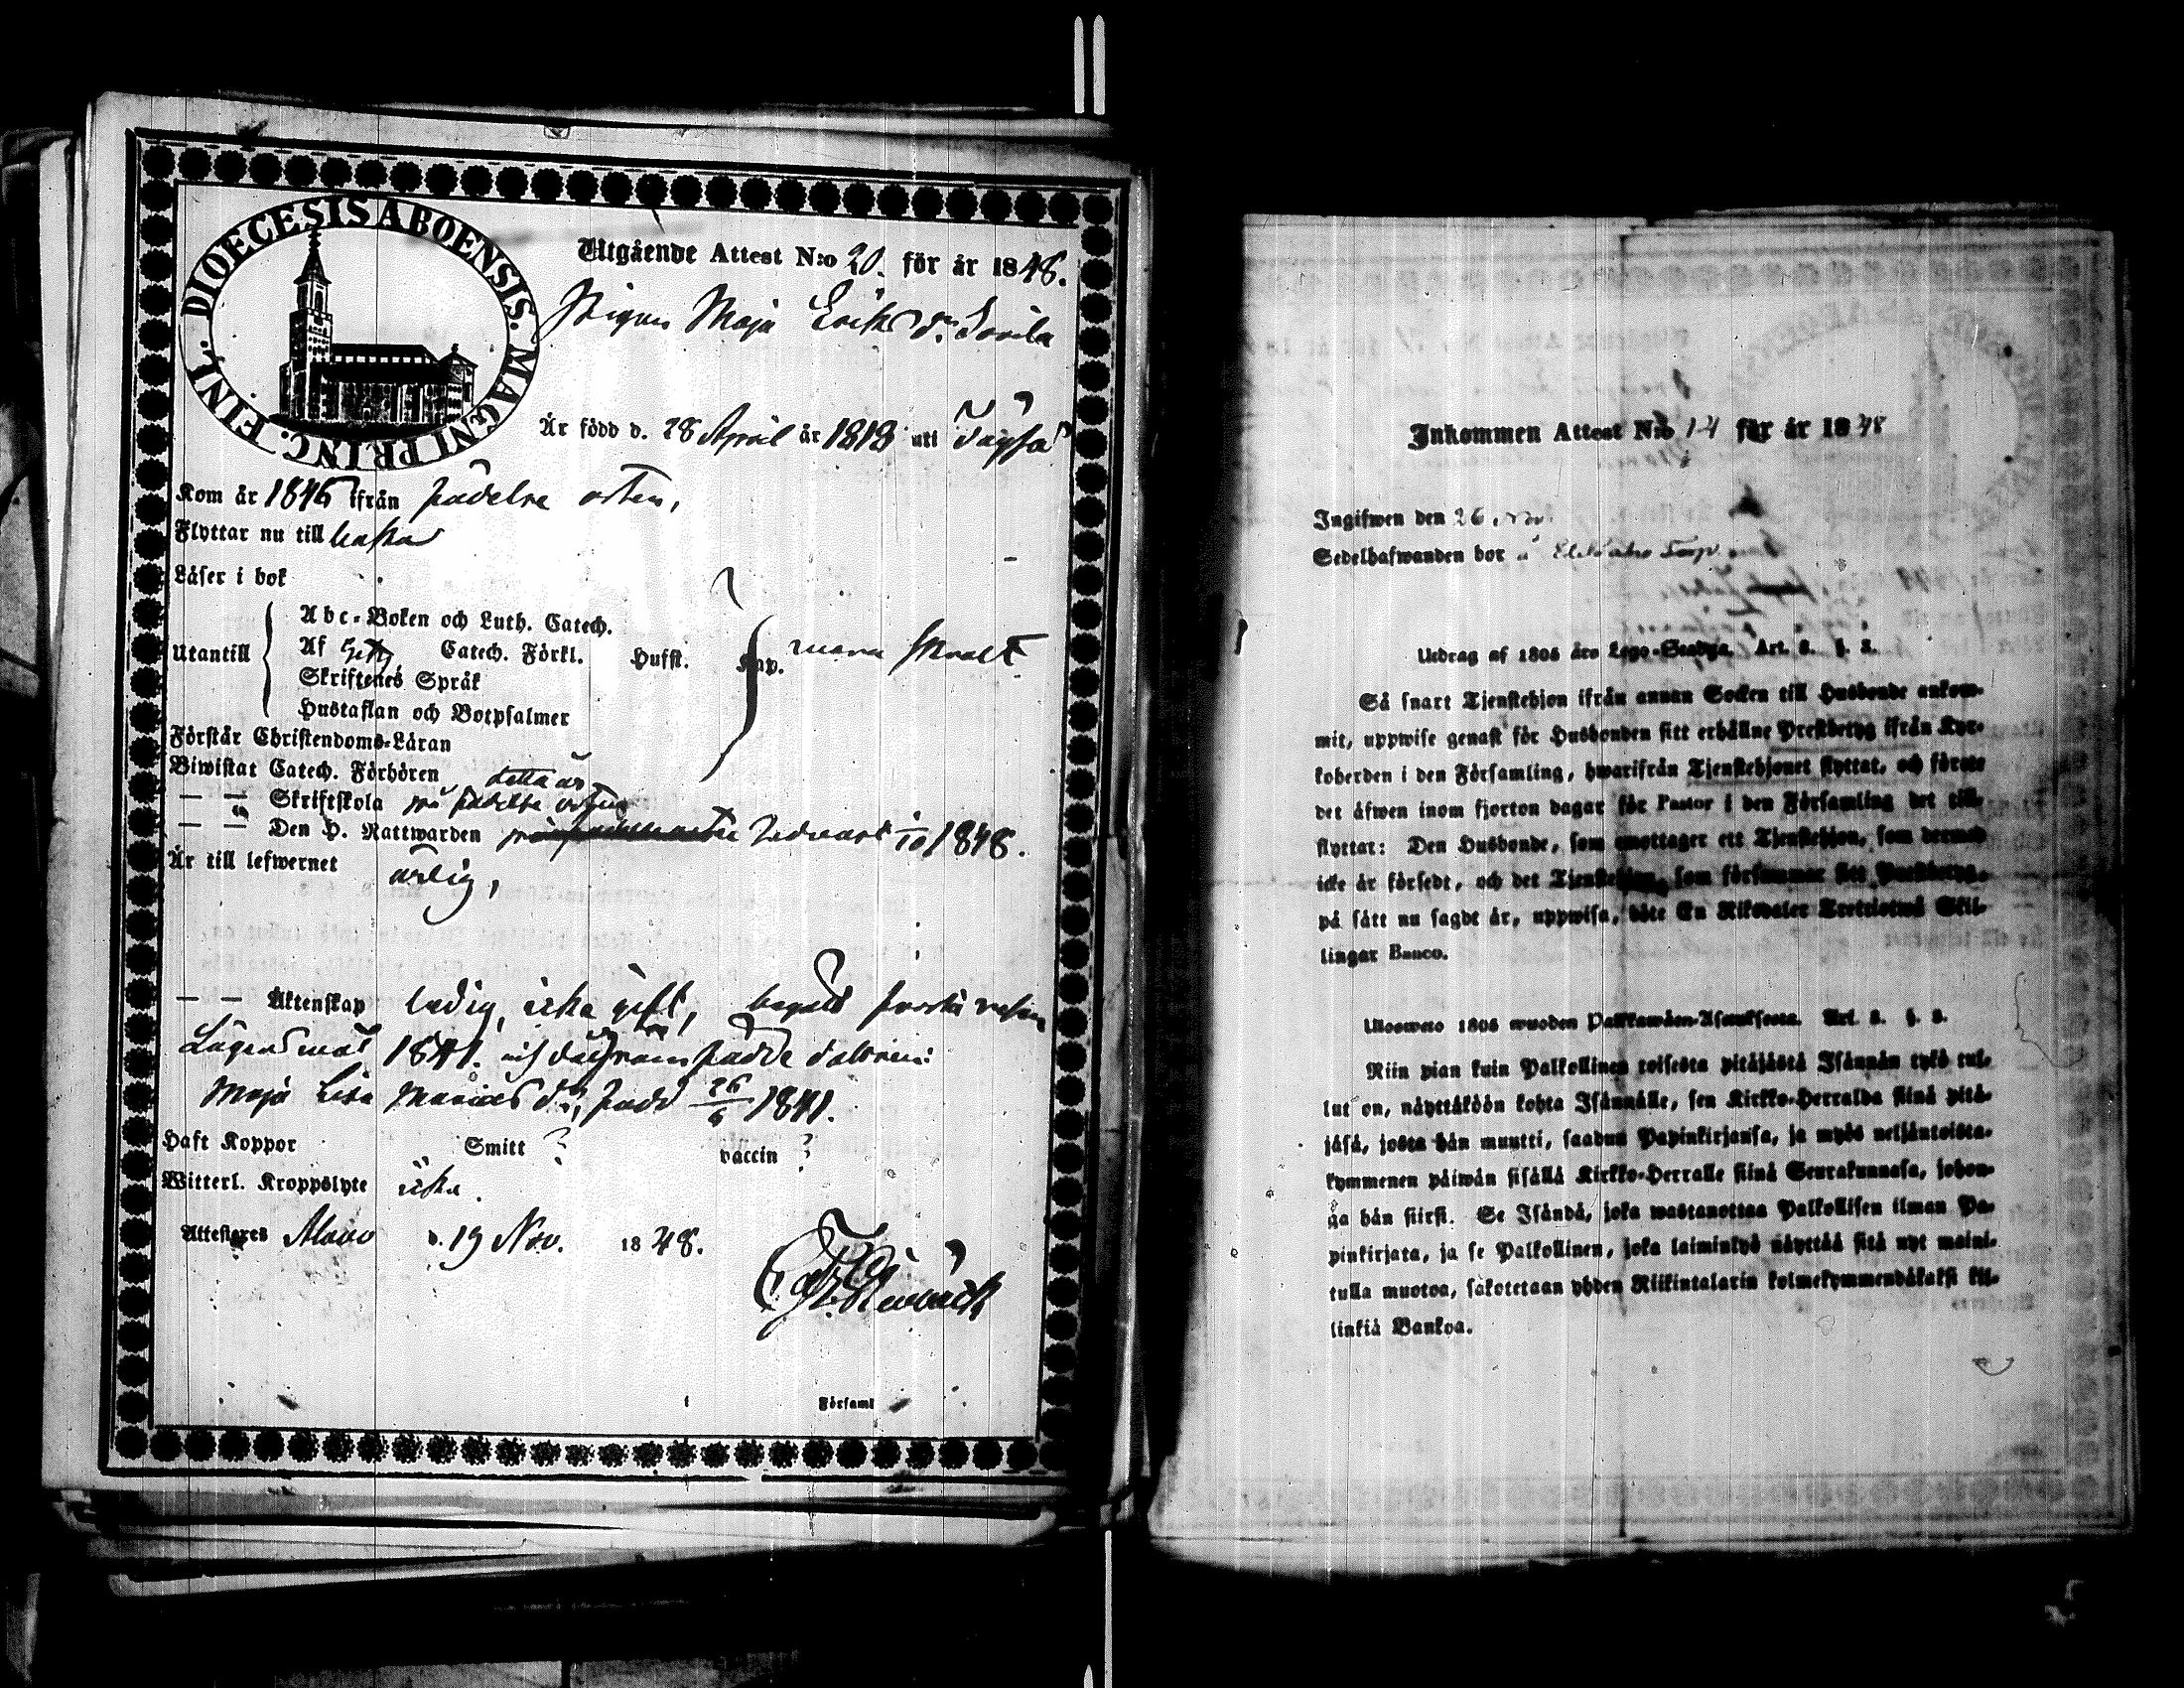 DIOECESIS ABOENSIS. MAGNI PRINC. FINL.
Utgående Attest N:o 20. för år 1848.
Pigan Maja Eriks dr.
Är född d. 28 April år 1818 uti Töysä
Kom år 1846 ifrån födelse orten,
Flyttar nu till
Läser i bok
Utantill
Abc-Boken och Luth. Catech.
Af Catech. Förkl. Hufst. Kap.
Skriftenes Språk
Hustaflan och Botpsalmer
Förstår Christendoms-Läran
Biwistat Catech. Förhören detta år
— — Skriftskola på födelse orten
— — Den H. Nattwarden 1848.
Är till lefwernet ärlig,
— — Äktenskap ledig, icke gift, begått första resan
Lägersmål 1841. födde
Maja Lisa dr, född 26/6 1841.
Haft Koppor Smitt ? vaccin ?
Witterl. Kroppslyte icke.
Attesteres Alavo d. 19 Nov. 1848.
i Församl
Inkommen Attest N:o 14 för år 1848
Ingifwen den 26 Nov.
Sedelhafwanden bor å
Utdrag af 1805 års Lego-Stadga. Art. 8. §. 8.
Så snart Tjenstehjon ifrån annan Socken till Husbonde ankom-
mit, uppwise genast för Husbonden sitt erhållne Prestbetyg ifrån Kyr-
koherden i den Församling, hwarifrån Tjenstehjonet flyttat, och förete
det äfwen inom fjorton dagar för Pastor i den Församling det till-
flyttat: Den Husbonde, som emottager ett Tjenstehjon, som dermed
icke är försedt, och det Tjenstehjon, som försummar sitt Prestbetyg,
på sätt nu sagdt är, uppwisa, böte En Riksdaler Trettiotwå Skil-
lingar Banco.
Ulosweto 1805 wuoden Palkkawäen-Asetuksesta. Art. 8. §. 8.
Niin pian kuin Palkollinen toisesta pitäjästä Isännän tykö tul-
lut on, näyttäköön kohta Isännälle, sen Kirkko-Herralda siinä pitä-
jäsä, josta hän muutti, saadun Papinkirjansa, ja myös neljäntoista-
kymmenen päiwän sisällä Kirkko-Herralle siinä Seurakunnasa, johon-
ga hän siirsi. Se Isändä, joka wastanottaa Palkollisen ilman Pa-
pinkirjata, ja se Palkollinen, joka laiminlyö näyttää sitä nyt maini-
tulla muotoa, sakotetaan yhden Riikintalarin kolmekymmendäkaksi kil-
linkiä Bankoa.